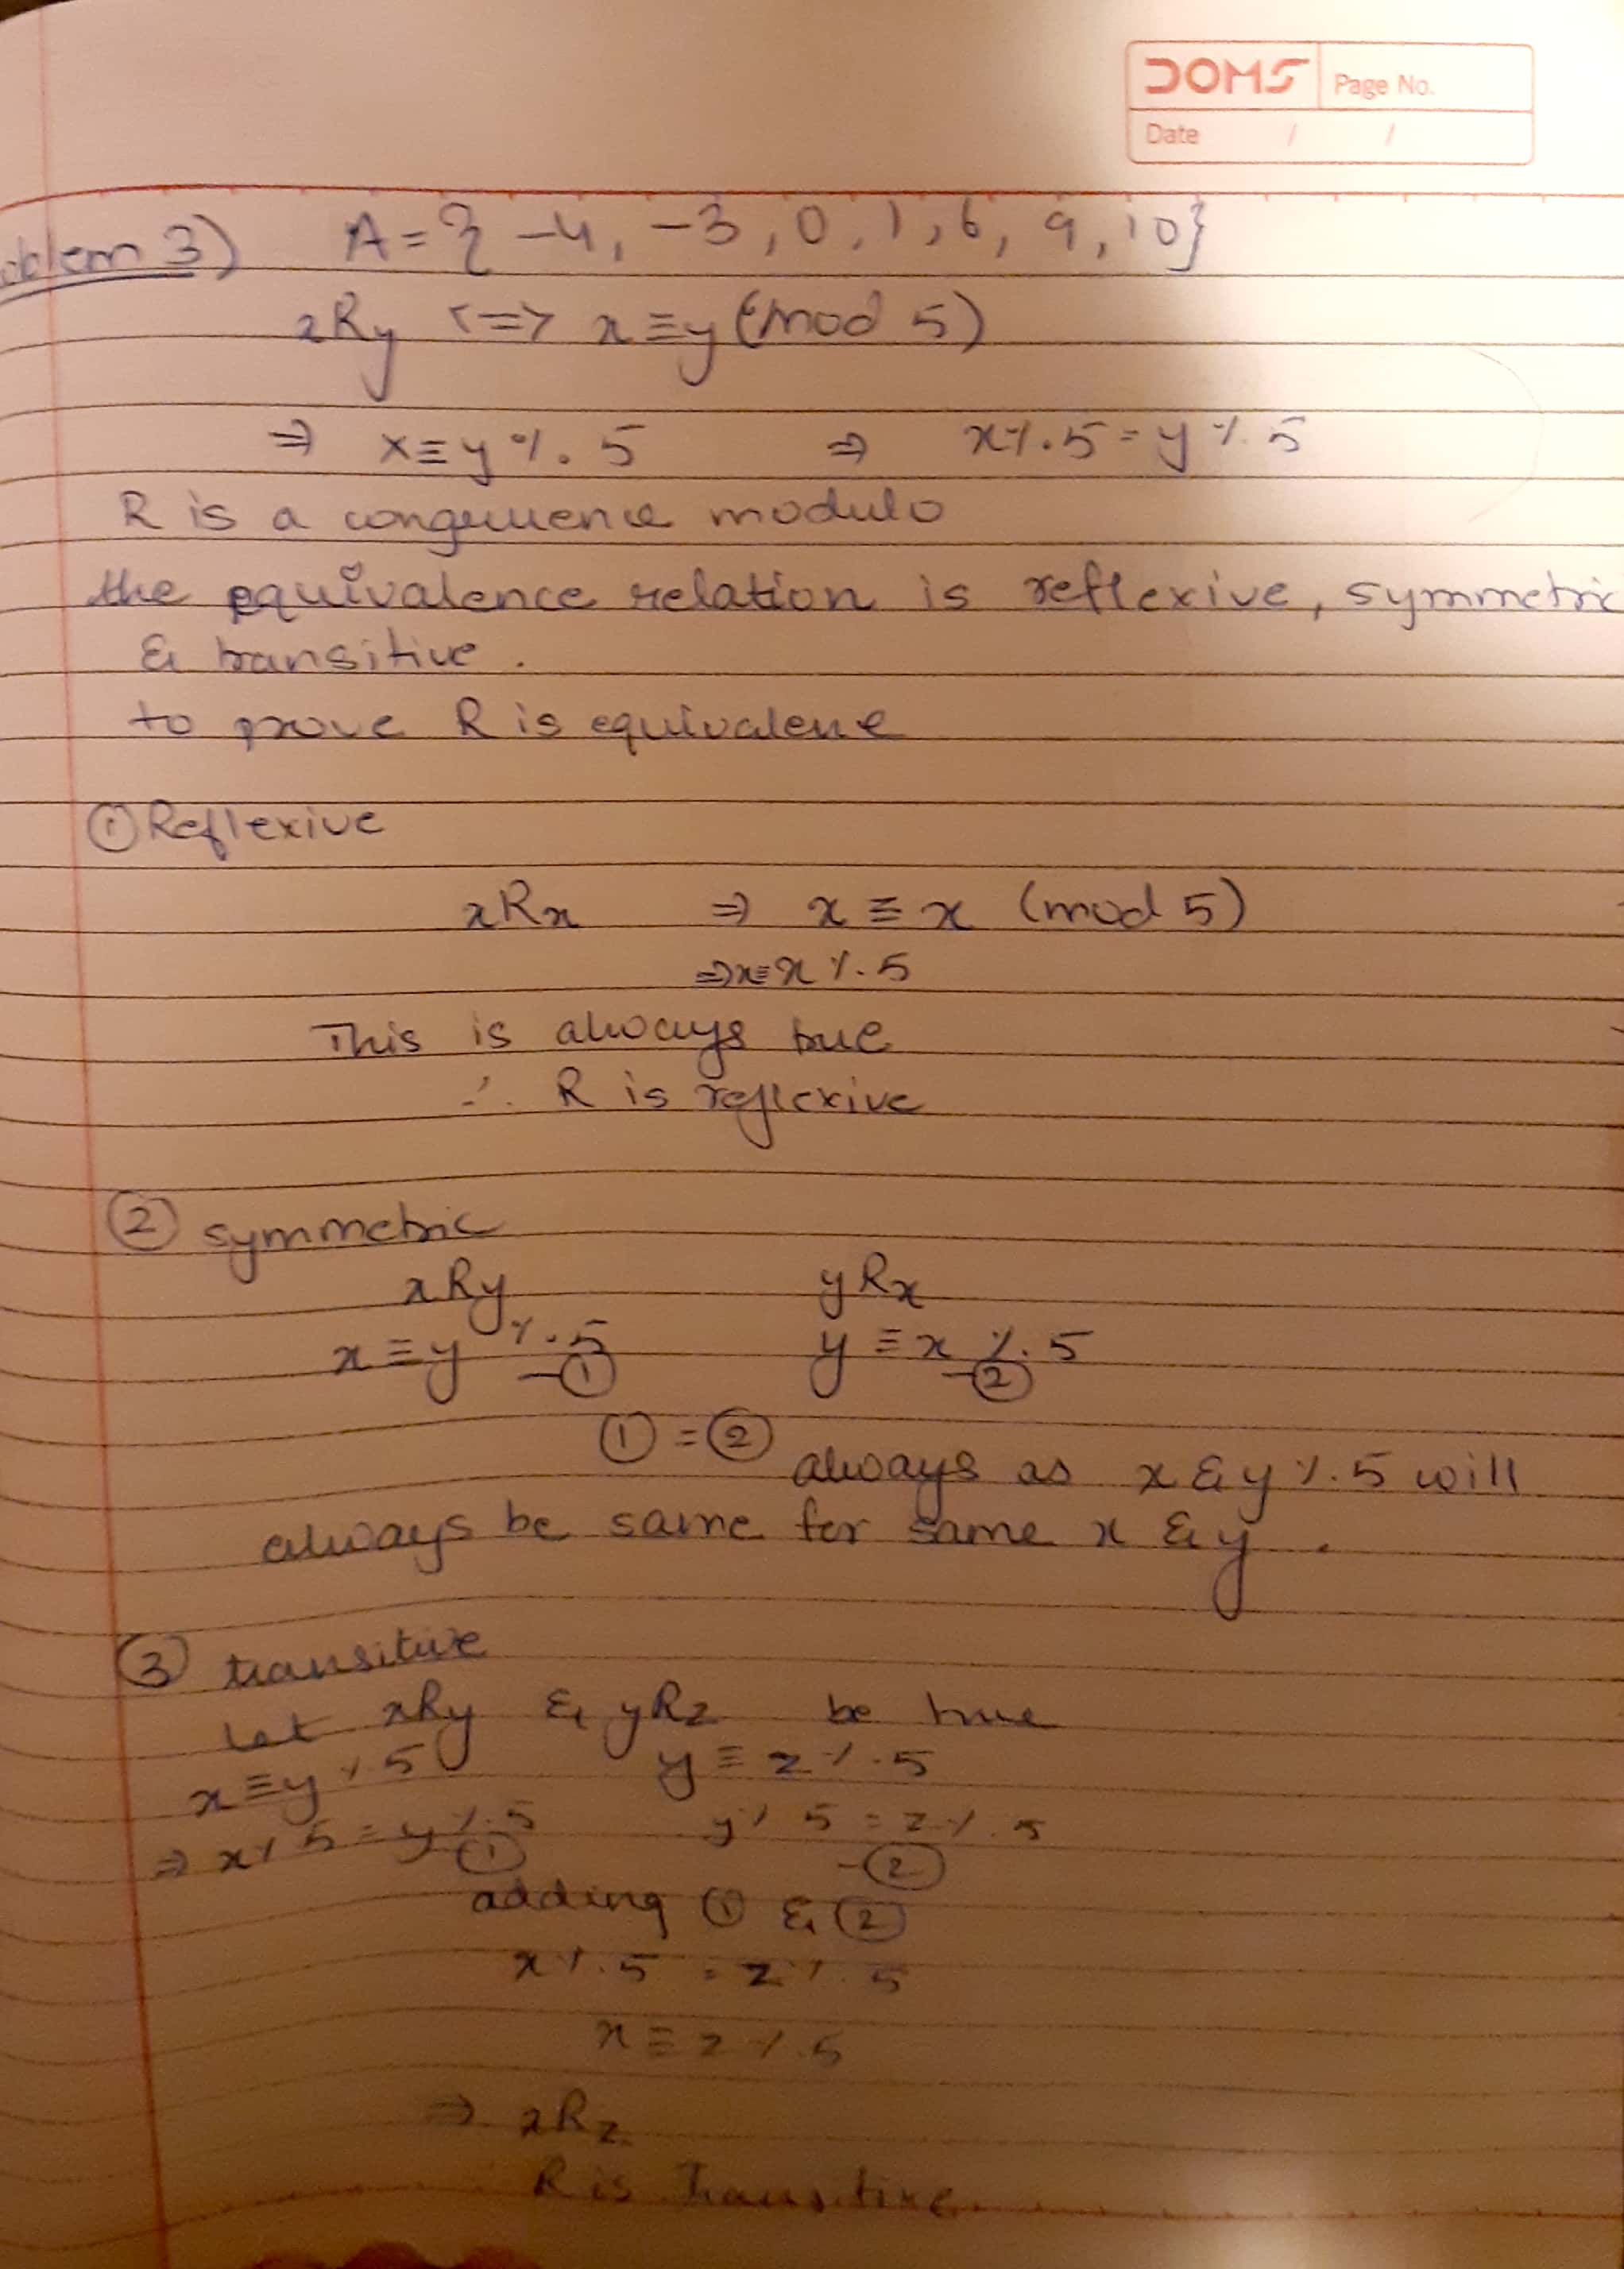 DOMS Page No.
Date / /
oblem 3) A = { -4, -3, 0, 1, 6, 9, 10}
xRy <=> x ≡ y (mod 5)
⇒ x ≡ y % 5 ⇒ x % 5 = y % 5
R is a congruence modulo
the equivalence relation is reflexive, symmetric
& transitive.
to prove R is equivalene
① Reflexive
xRx ⇒ x ≡ x (mod 5)
⇒ x ≡ x % 5
This is always true
∴ R is reflexive
② symmetric
xRy yRx
x ≡ y % 5 y ≡ x % 5
-① -②
① = ②
always as x & y % 5 will
always be same for same x & y.
③ transitive
Let xRy & yRz be true
x ≡ y % 5 y ≡ z % 5
⇒ x % 5 = y % 5 y % 5 = z % 5
① -②
adding ① & ②
x % 5 = z % 5
x ≡ z % 5
⇒ xRz
R is Transitive.